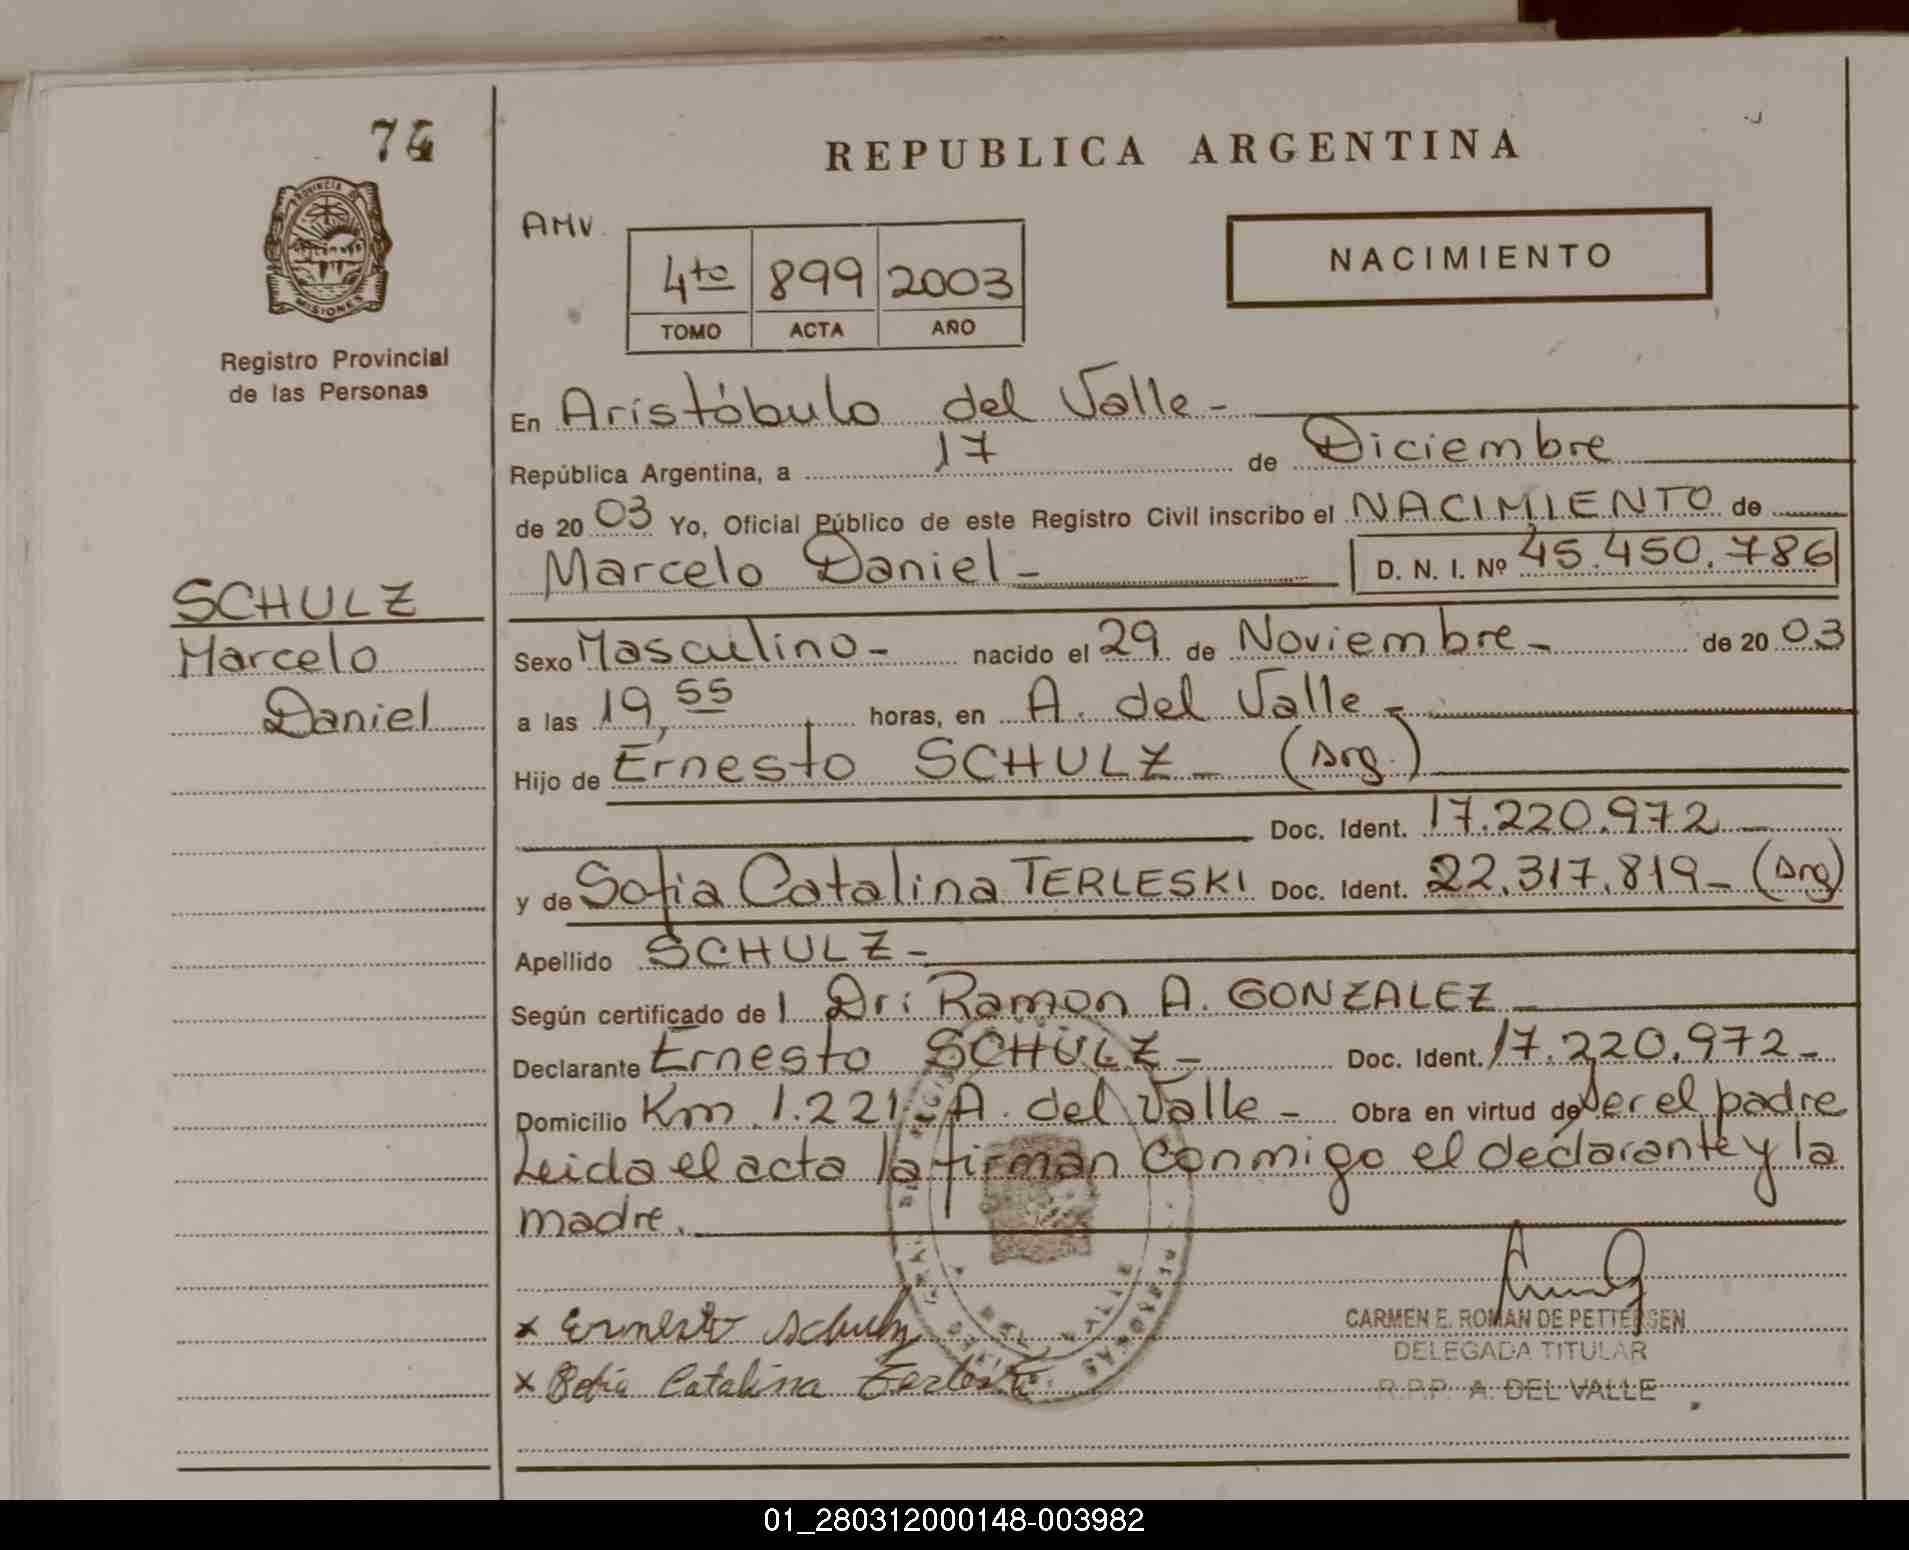 74
REPUBLICA ARGENTINA
PROVINCIA DE
MISIONES
Registro Provincial
de las Personas
AMV.
4to 899 2003
TOMO ACTA AÑO
NACIMIENTO
En Aristóbulo del Valle -
República Argentina, a 17 de Diciembre
de 20 03 Yo, Oficial Público de este Registro Civil inscribo el NACIMIENTO de
Marcelo Daniel - D. N. I. Nº 45.450.786
SCHULZ
Marcelo
Daniel
Sexo Masculino - nacido el 29 de Noviembre - de 20 03
a las 19,55 horas, en A. del Valle -
Hijo de Ernesto SCHULZ - (Arg.)
Doc. Ident. 17.220.972 -
y de Sofia Catalina TERLESKI Doc. Ident. 22.317.819 - (Arg)
Apellido SCHULZ -
Según certificado de l Dr: Ramon A. GONZALEZ -
Declarante Ernesto SCHULZ - Doc. Ident. 17.220.972 -
Domicilio Km 1.221 - A. del Valle - Obra en virtud de Ser el padre
Leida el acta la firman conmigo el declarante y la
madre.
x Ernesto Schulz
x Sofia Catalina Terleski
CARMEN E. ROMAN DE PETTERSEN
DELEGADA TITULAR
R.P.P. A. DEL VALLE
01_280312000148-003982